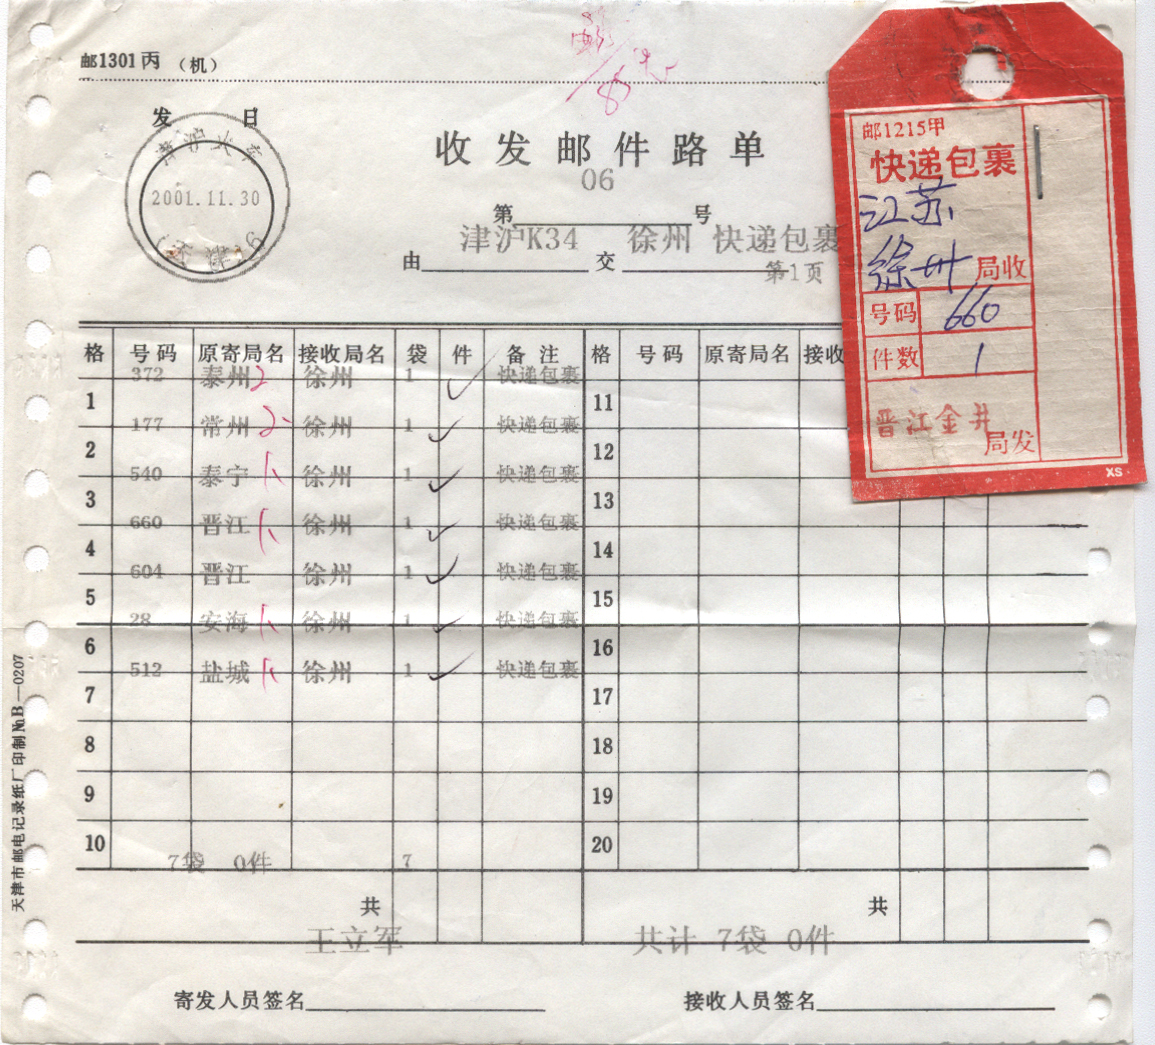 邮1301丙 （机）
发 日
津沪火车
2001.11.30
收发邮件路单
06
第 号
津沪K34 徐州 快递包裹
由 交
第1页
格 号码 原寄局名 接收局名 袋 件 备注 格 号码 原寄局名 接收
372 泰州 2 徐州 1 快递包裹
1 11
177 常州 2 徐州 1 快递包裹
2 12
540 泰宁 徐州 1 快递包裹
3 13
660 晋江 徐州 1 快递包裹
4 14
604 晋江 徐州 1 快递包裹
5 15
28 安海 徐州 1 快递包裹
6 16
512 盐城 徐州 1 快递包裹
7 17
8 18
9 19
10 20
7袋 0件 7
共 共
王立军 共计 7袋 0件
寄发人员签名 接收人员签名
天津市邮电记录纸厂印制 №B—0207
邮1215甲
快递包裹
江苏
徐州 局收
号码 660
件数 1
晋江金井
局发
XS